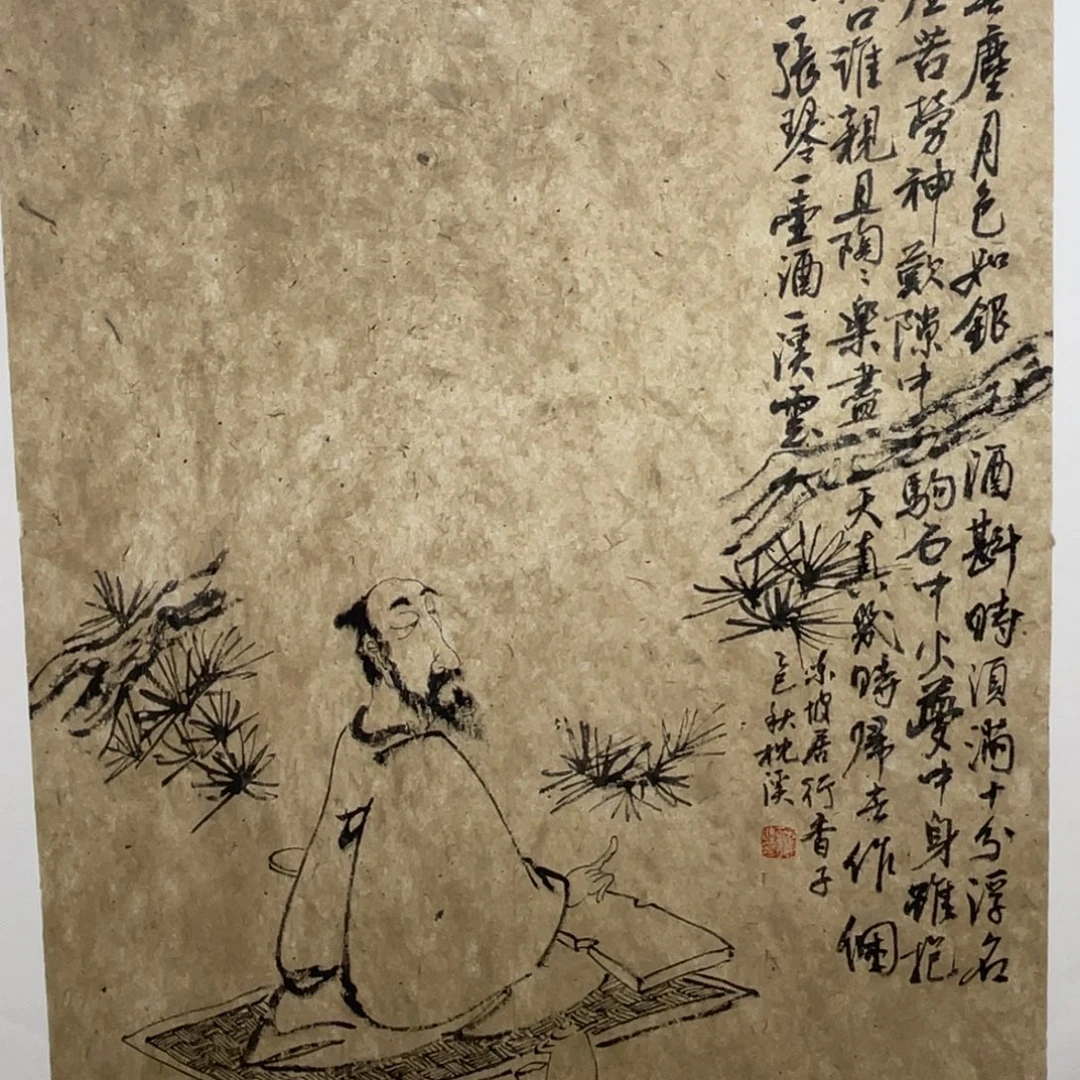 塵月色如銀酒斟時須滿十分浮名
苦勞神歎隙中駒石中火夢中身雖抱
口誰親且陶〻樂盡天真幾時歸去作個
一張琴一壺酒一溪雲
東坡居行香子
秋枕溪